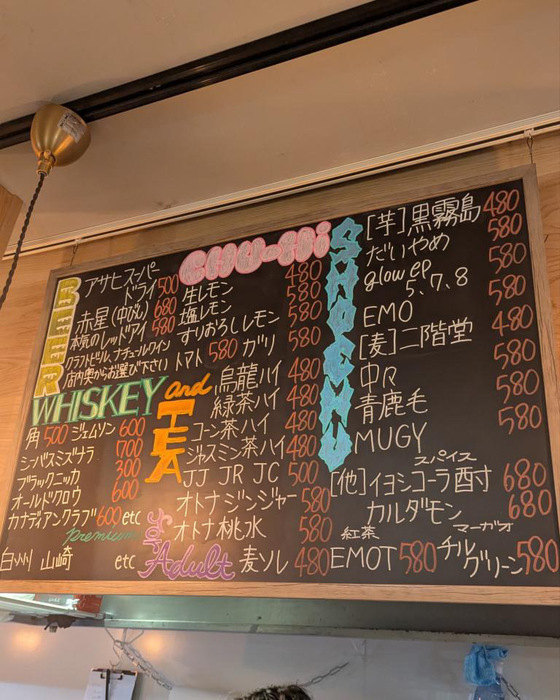 BEER
アサヒスーパー
ドライ 500
赤星(中びん) 680
本気のレッドアイ 580
クラフトビール、ナチュールワイン
店内奥からお選び下さい
WHISKEY
角 500 ジェムソン 600
シーバスミズナラ 700
ブラックニッカ 300
オールドクロウ 600
カナディアンクラブ 600 etc
Premium
白州 山崎 etc
Chu-Hi
生レモン 480
塩レモン 580
すりおろしレモン 580
トマト 580 ガリ 580
and
TEA
烏龍ハイ 480
緑茶ハイ 480
コーン茶ハイ 480
ジャスミン茶ハイ 480
JJ JR JC 500
オトナジンジャー 580
オトナ桃水 580
Adult 麦ソレ 480
SHOCHU
[芋]黒霧島 480
だいやめ 580
glow ep 5、7、8 580
EMO 580
[麦]二階堂 480
中々 580
青鹿毛 580
MUGY 580
[他]イヨシコーラ酎 スパイス 680
カルダモン 680
紅茶
EMOT 580
マーガオ
チルグリーン 580